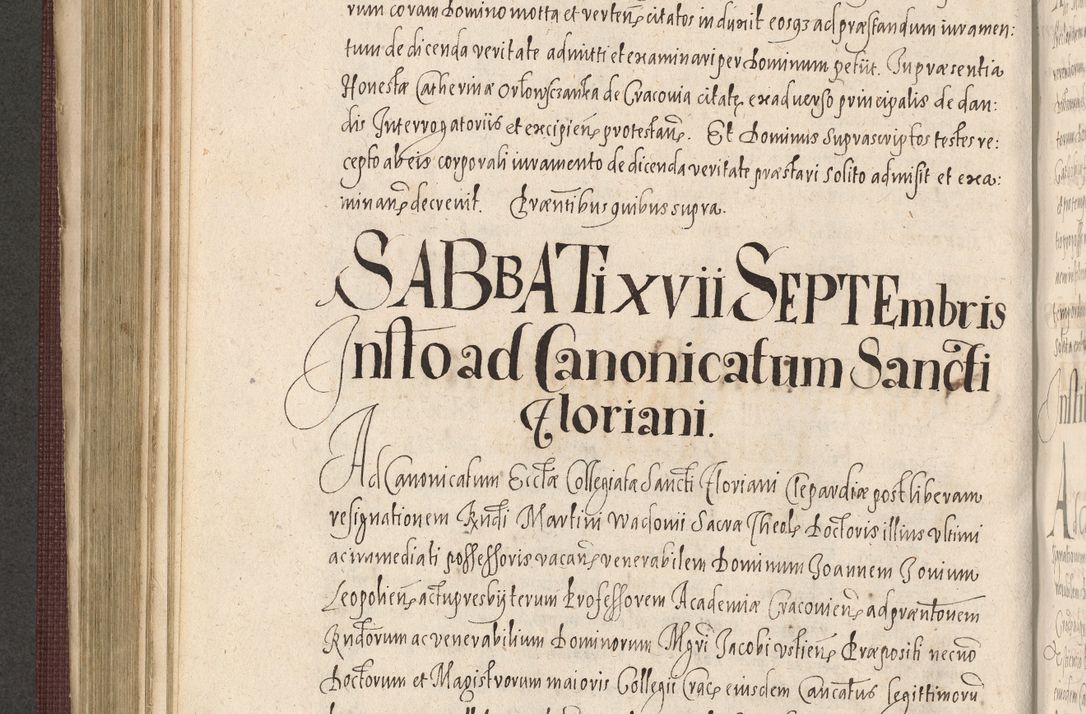 rum coram Domino motta et verteñ citatos induxit eosqz ad præstandum iuramen:
tum de dicenda veritate admitti et examinari per Dominum petiit. In præsentia
Honestæ Catherinæ Orłowsczanka de Cracovia citatæ ex adverso principalis de dan:
dis Interrogatoriis et excipieñ protestañ. Et Dominus suprascriptos testes re:
cepto ab eis corporali iuramento de dicenda veritate præstari solito admisit et exa:
minañ decrevit. Præntibus quibus supra.
SABBATi XVii SEPTEmbris
Insto ad Canonicatum Sancti
Floriani.
Ad Canonicatum Ecclæ Collegiatæ Sancti Floriani Clepardiæ post liberam
resignationem Rndi Martini Wadowii Sacræ Theolæ Doctoris illius ultimi
ac immediati possessoris vacañ venerabilem Dominum Joannem Jovium
Leopolieñ actu presbyterum Professorem Academiæ Cracovieñ ad præntōnem
Rndorum ac venerabilium Dominorum Mgri Jacobi Ustieñ Præpositi necnō
Doctorum et Magistrorum maioris Collegii Cracᵉ eiusdem Cancatus legittimorū